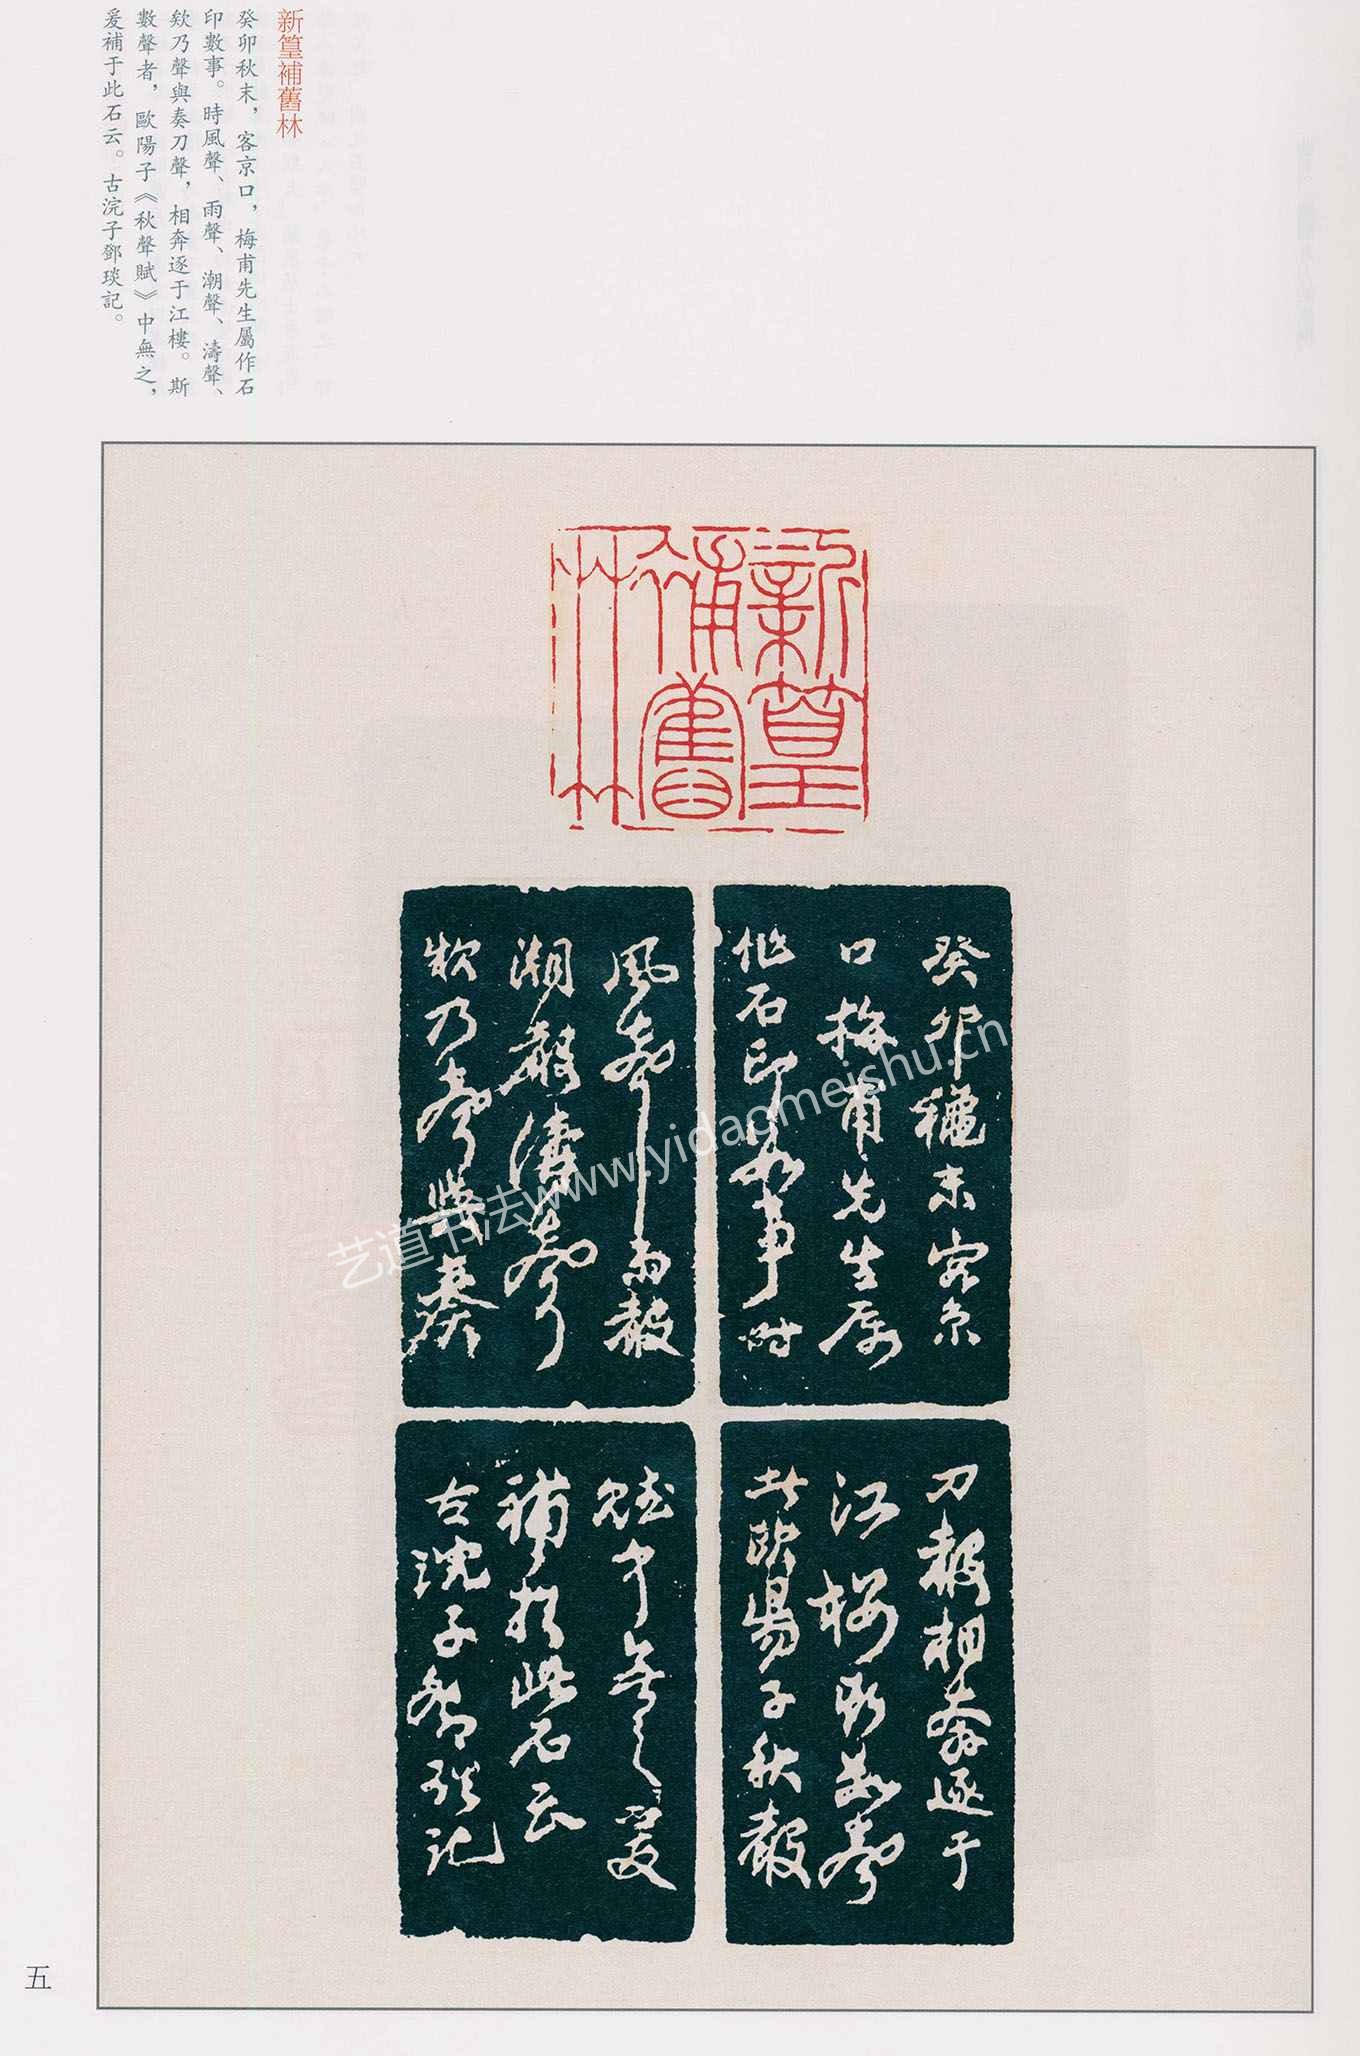 新篁補舊林
癸卯秋末，客京口，梅甫先生屬作石
印數事。時風聲、雨聲、潮聲、濤聲、
欸乃聲與奏刀聲，相奔逐于江樓。斯
數聲者，歐陽子《秋聲賦》中無之，
爰補于此石云。古浣子鄧琰記。
新篁
補舊
林
癸卯穐末客京
口梅甫先生屬
作石印數事時
風聲雨聲
潮聲濤聲
欸乃聲與奏
刀聲相奔逐于
江樓斯數聲
者歐陽子秋聲
賦中無之爰
補於此石云
古浣子鄧琰記
艺道书法www.yidaomeishu.cn
五